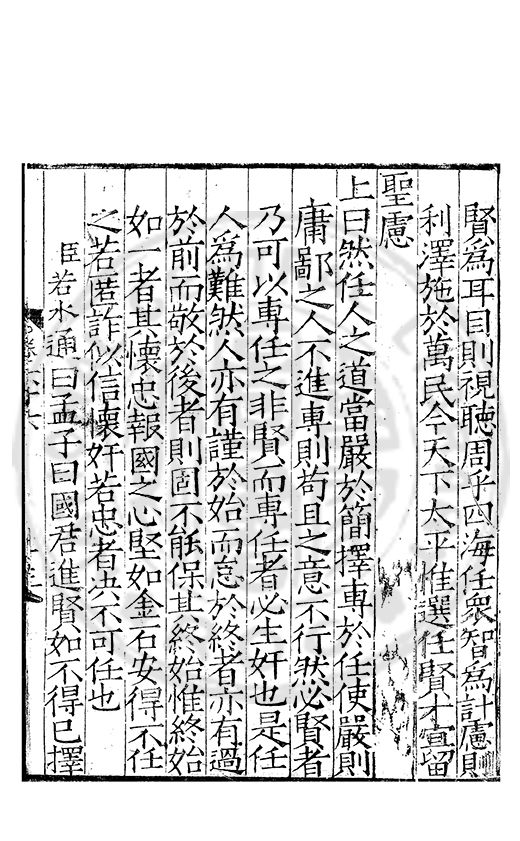 賢爲耳目則視聽周乎四海任衆智爲計慮則
利澤施於萬民今天下太平惟選任賢才宜留
聖慮
上曰然任人之道當嚴於簡擇專於任使嚴則
庸鄙之人不進專則苟且之意不行然必賢者
乃可以專任之非賢而專任者必生奸也是任
人爲難然人亦有謹於始而怠於終者亦有過
於前而敬於後者則固不能保其終始惟終始
如一者其懷忠報國之心堅如金石安得不任
之若匿詐似信懷奸若忠者決不可任也
臣若水通曰孟子曰國君進賢如不得已擇